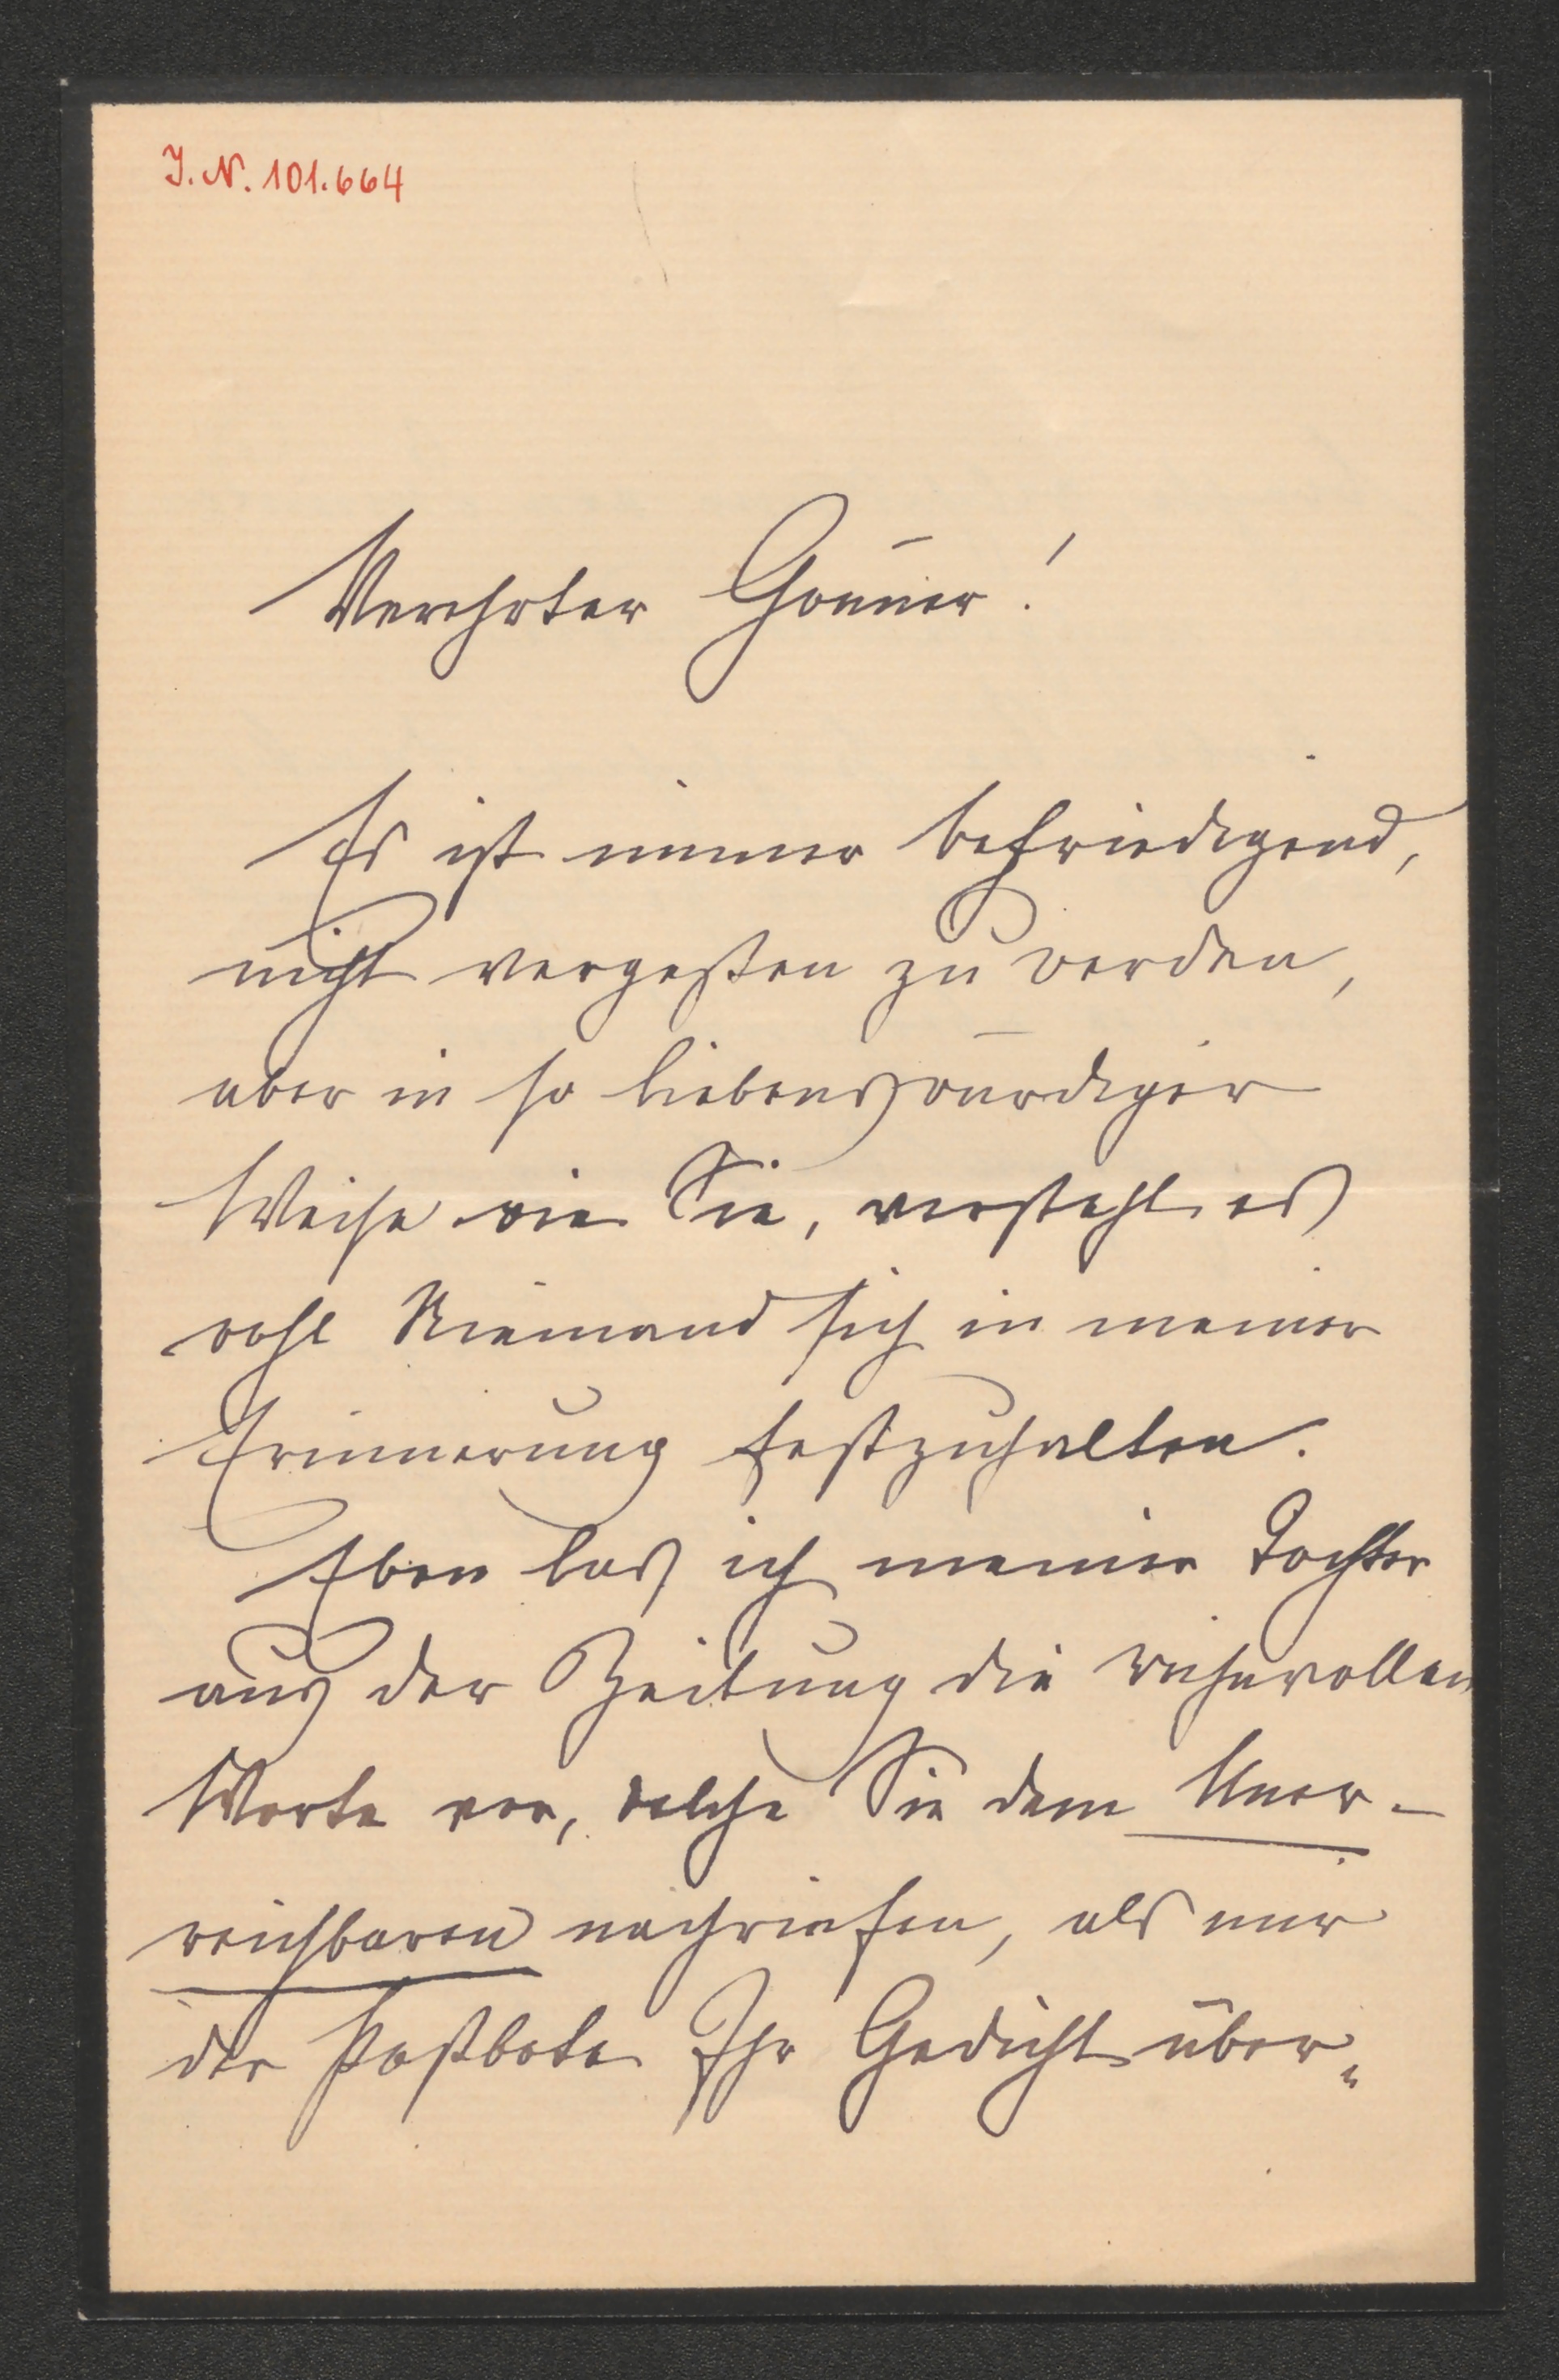 J. N. 101.664
Verehrter Gönner!
Es ist immer befriedigend,
nicht vergessen zu werden,
aber in so liebenswürdiger
Weise wie Sie, versteht es
wohl Niemand sich in meiner
Erinnerung festzuhalten.
Eben las ich meiner Tochter
aus der Zeitung die weihevollen
Worte vor, welche Sie dem Uner-
reichbaren nachriefen, als mir
der Postbote Ihr Gedicht über„